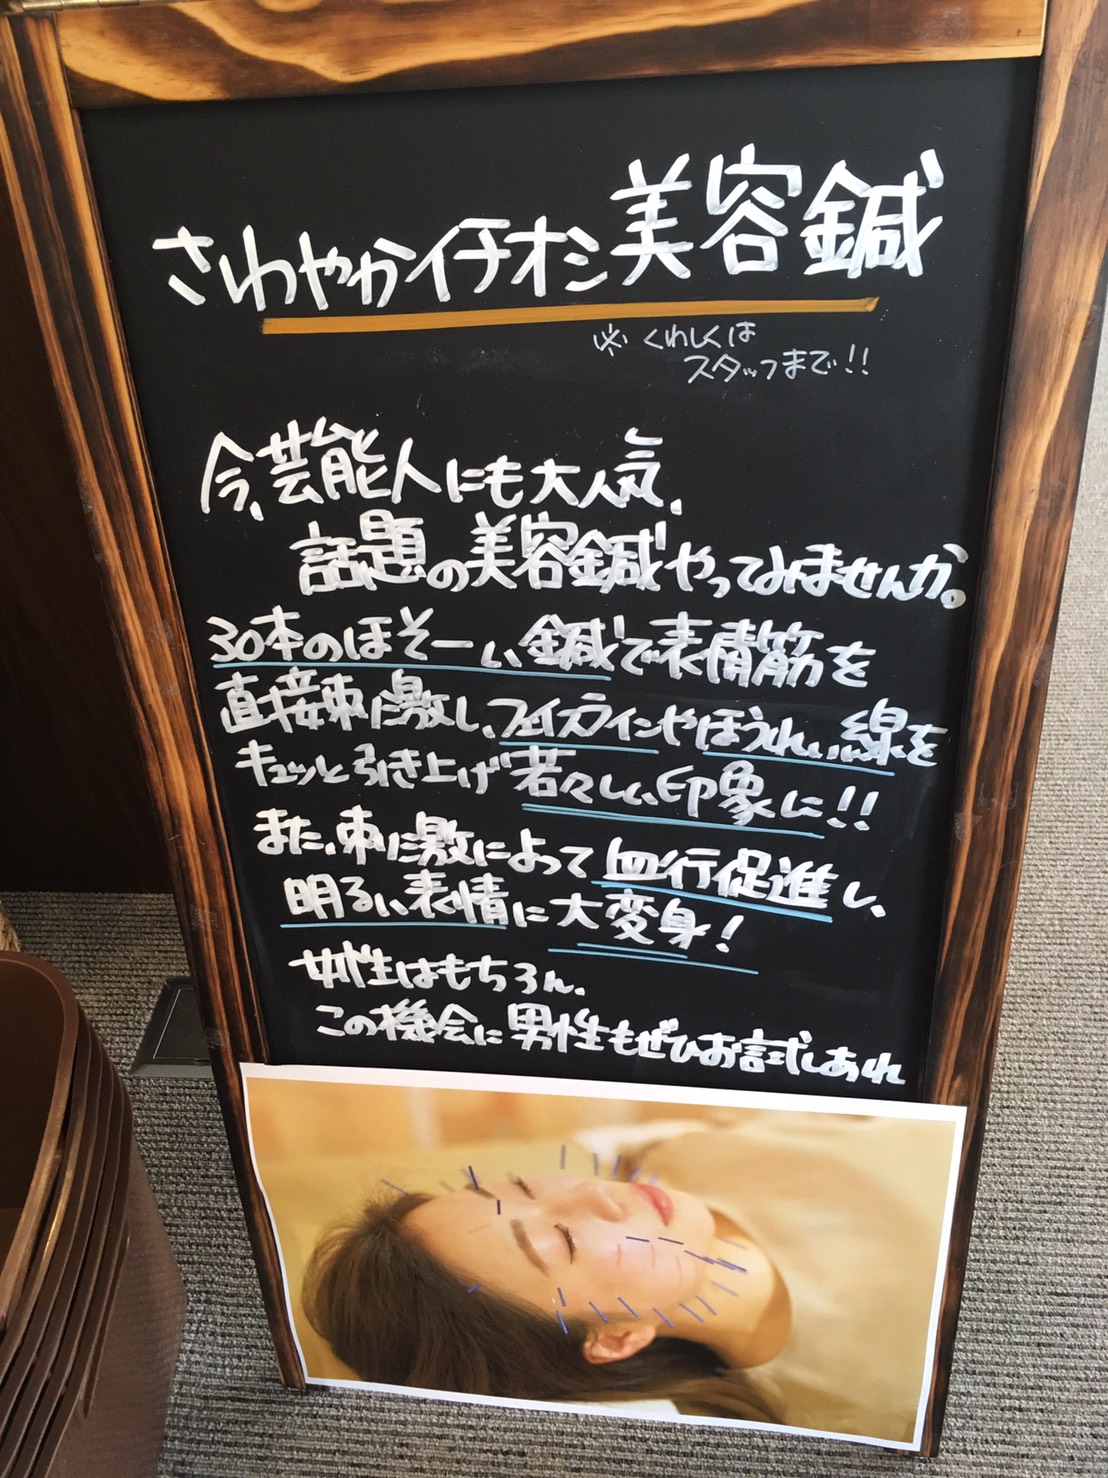 さわやかイチオシ美容鍼
※くわしくは
スタッフまで!!
今、芸能人にも大人気、
話題の美容鍼やってみませんか。
30本のほそーい鍼で表情筋を
直接刺激し、フェイスラインやほうれい線を
キュッと引き上げ若々しい印象に!!
また、刺激によって血行促進し、
明るい表情に大変身!
女性はもちろん、
この機会に男性もぜひお試しあれ